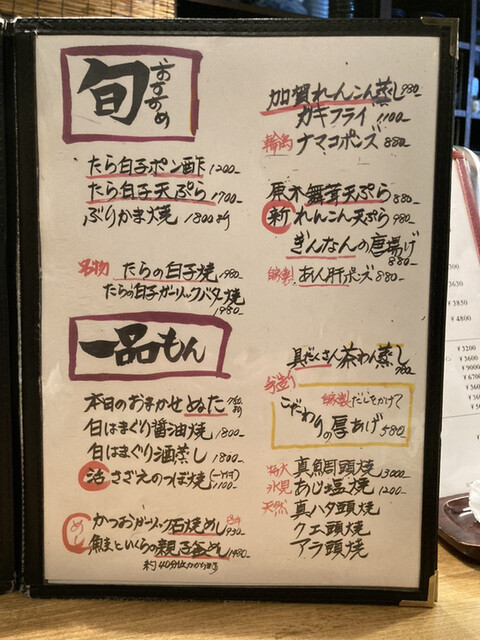 旬 おすすめ
たら白子ポン酢 1200-
たら白子天ぷら 1700-
ぶりかま焼 1800
名物 たらの白子焼 1980-
たらの白子ガーリックバター焼
1980-
一品もん
本日のおまかせ ぬた
白はまぐり醤油焼 1800-
白はまぐり酒蒸し 1800-
活 さざえのつぼ焼 1100-
めし かつおガーリック石焼めし 930-
鮭といくらの親子釜めし 1980-
約40分
加賀れんこん蒸し 980-
カキフライ 1100-
輪島 ナマコポンズ 880-
原木舞茸天ぷら 880-
新 れんこん天ぷら 980-
ぎんなんの唐揚げ
880-
自家製 あん肝ポンズ 880-
具だくさん茶わん蒸し
手造り
自家製だしをかけて
こだわりの厚あげ 580-
特大 真鯛頭焼 3000-
氷見 あじ塩焼 1200-
天然 真ハタ頭焼
クエ頭焼
アラ頭焼
300
3630
¥3850
¥4800
¥3200
¥3600